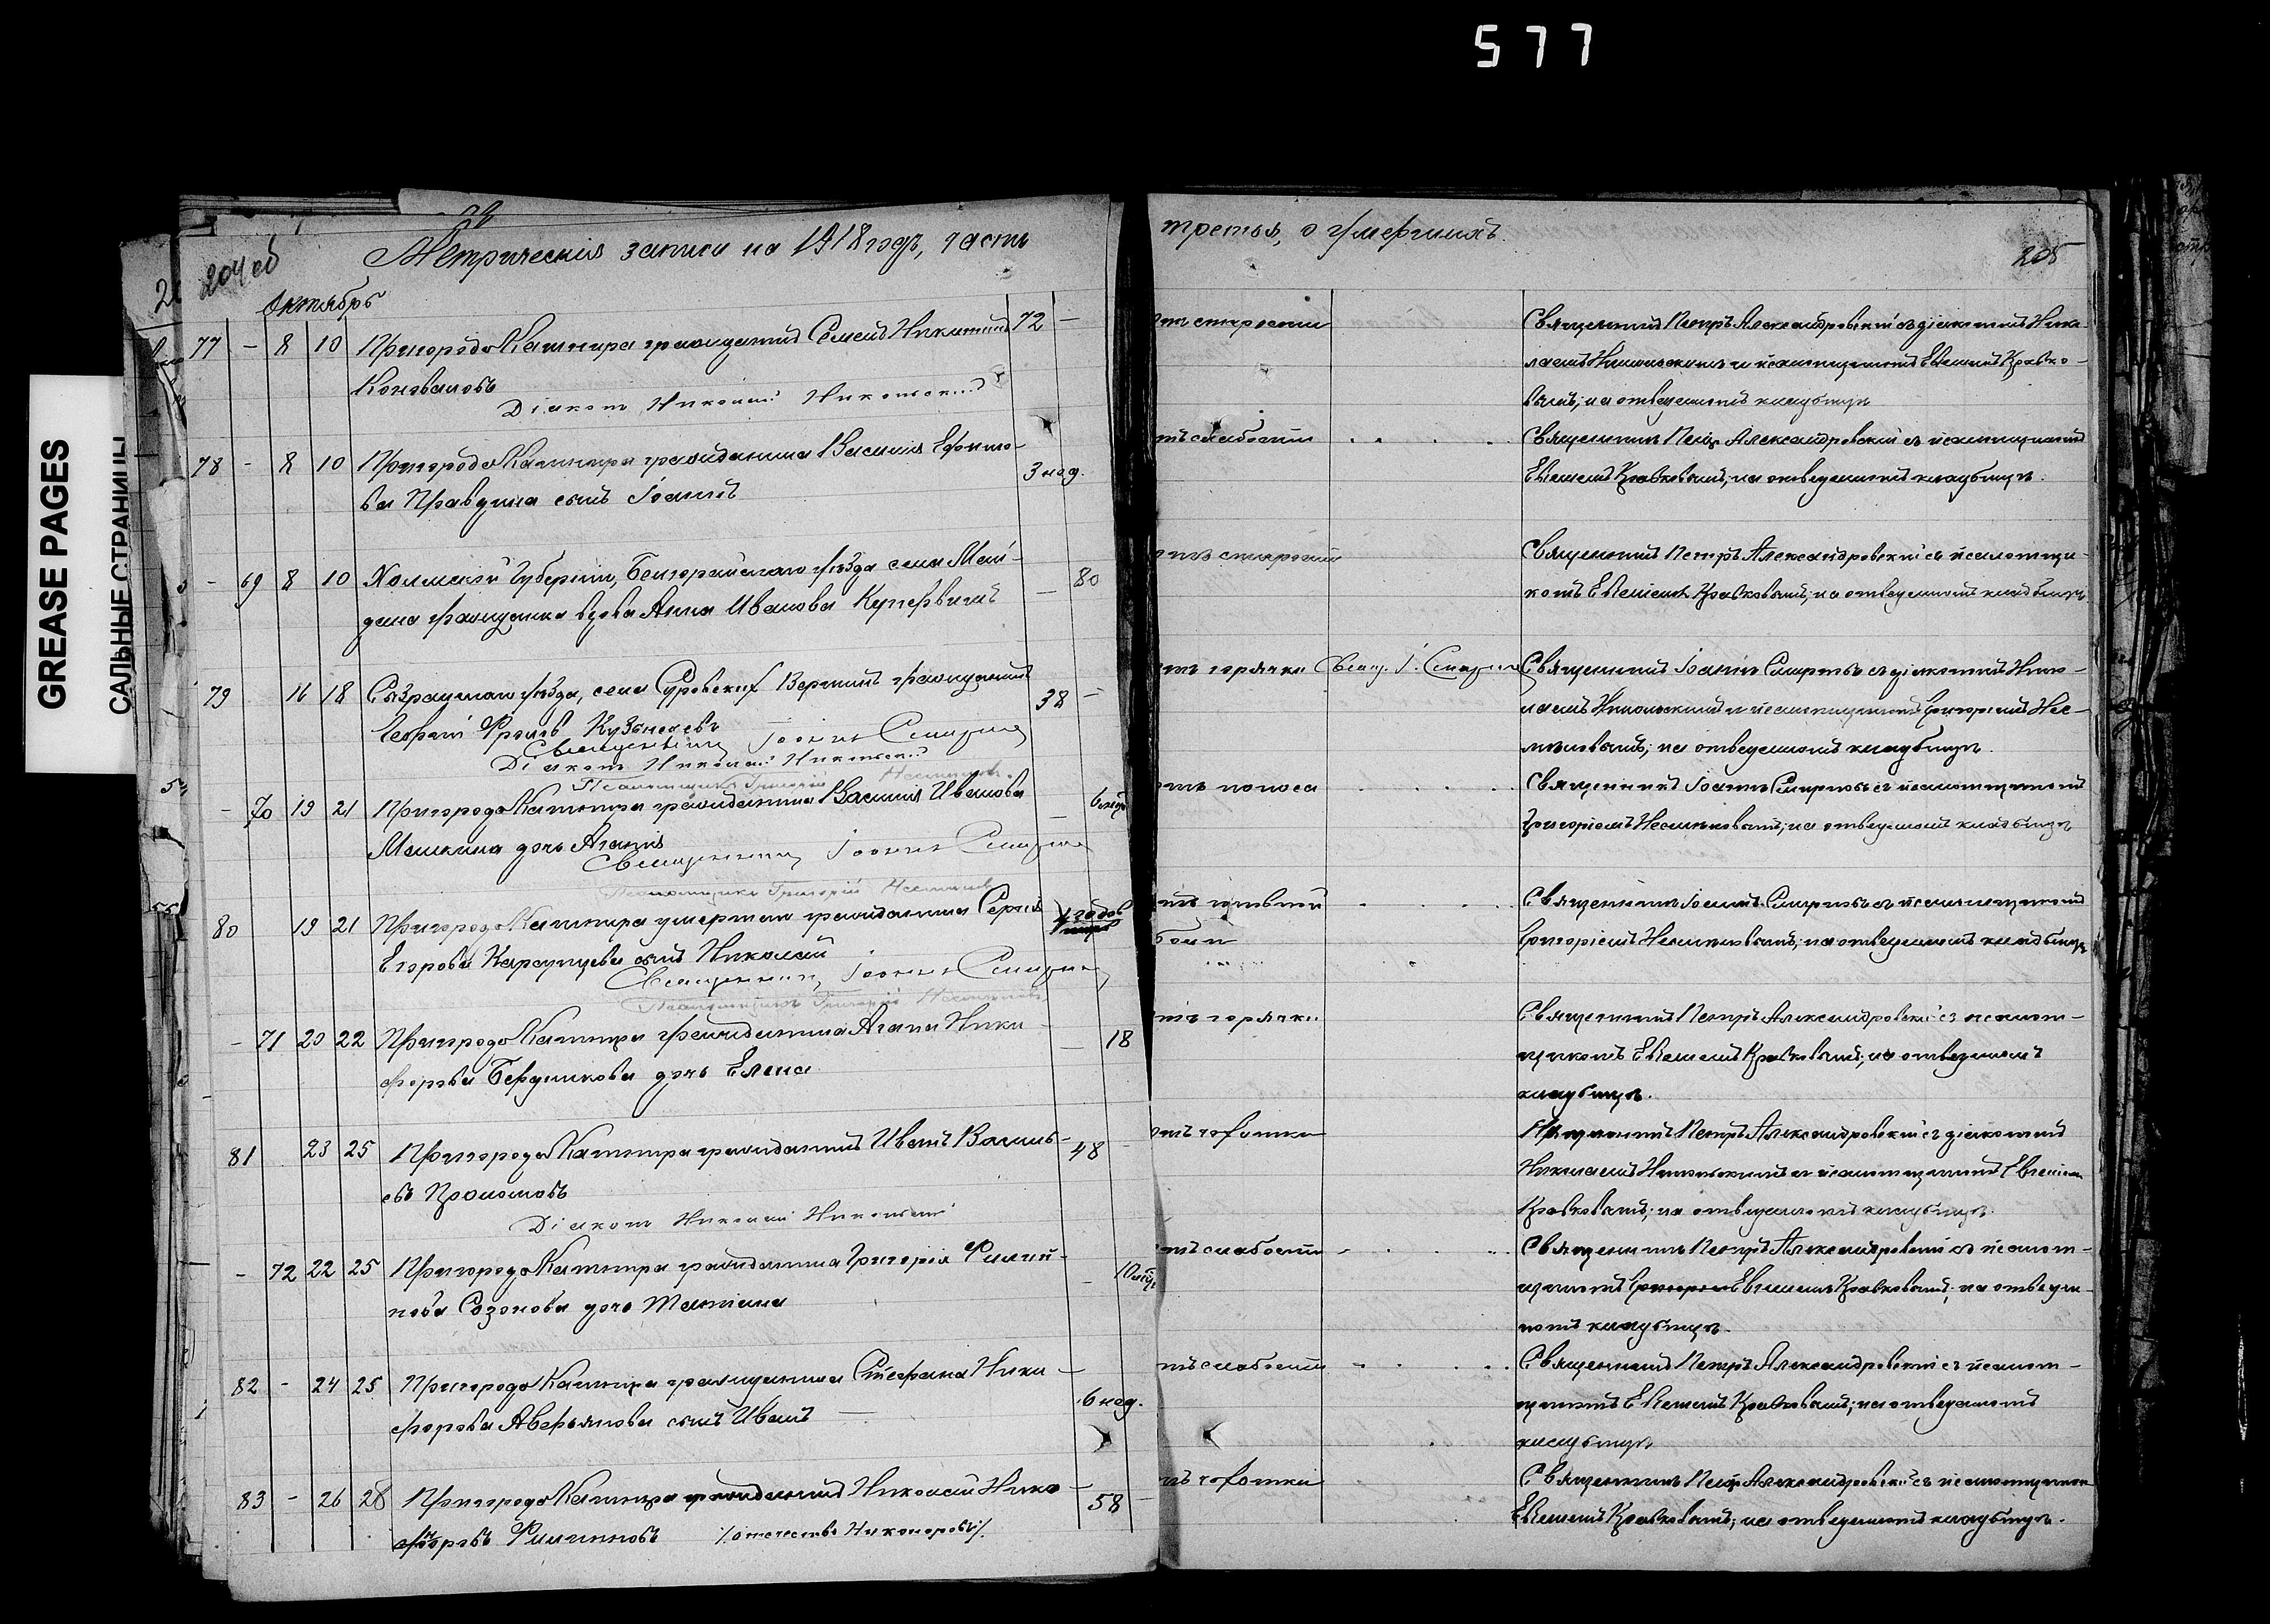 577
GREASE PAGES
САЛЬНЫЕ СТРАНИЦЫ
204 об
Метрическия записи на 1918 годъ, часть
третья, о умершихъ.
205
Октябрь
77 - 8 10 Пригорода Кашпира гражданинъ Семенъ Никитинъ 72 -
Коноваловъ
Діаконъ Николай Никольскій
отъ старости
Священникъ Петръ Александровскій съ діакономъ Нико-
лаемъ Никольскимъ и псаломщикомъ Евгеніемъ Кравко-
вымъ; на отведенномъ кладбищѣ
78 - 8 10 Пригорода Кашпира гражданина Василія Ефимо-
ва Правдина сынъ Іоаннъ
3 нед.
отъ слабости
Священникъ Петръ Александровскій съ псаломщикомъ
Евгеніемъ Кравковымъ; на отведенномъ кладбищѣ.
- 69 8 10 Холмской Губерніи, Белгорайскаго уѣзда села Май-
дана гражданка вдова Анна Иванова
- 80
отъ старости
Священникъ Петръ Александровскій съ псаломщи-
комъ Евгеніемъ Кравковымъ; на отведенномъ кладбищѣ
79 16 18 Сызранскаго уѣзда, села гражданинъ
Фроловъ
38 -
Священникъ Іоаннъ Смирновъ
Діаконъ Николай Никольскій
Псаломщикъ Григорій
отъ горячки Свящ. І. Смирновъ
Священникъ Іоаннъ Смирновъ съ діакономъ Нико-
лаемъ Никольскимъ и псаломщикомъ Григоріемъ
на отведенномъ кладбищѣ.
- 70 19 21 Пригорода Кашпира гражданина Василія Иванова
дочь Агапія
Священникъ Іоаннъ Смирновъ
Псаломщикъ Григорій
отъ поноса
Священникъ Іоаннъ Смирновъ съ псаломщикомъ
Григоріемъ на отведенномъ кладбищѣ
80 19 21 Пригорода Кашпира умершаго гражданина Сергія
Егорова сынъ Николай
Священникъ Іоаннъ Смирновъ
Псаломщикъ Григорій
Священникъ Іоаннъ Смирновъ съ псаломщикомъ
Григоріемъ на отведенномъ кладбищѣ
- 71 20 22 Пригорода Кашпира гражданина Агапа Ники-
форова Бердникова дочь Елена
- 18
отъ горячки
Священникъ Петръ Александровскій съ псалом-
щикомъ Евгеніемъ Кравковымъ; на отведенномъ
кладбищѣ.
81 23 25 Пригорода Кашпира гражданинъ Иванъ Василь-
евъ
48 -
Діаконъ Николай Никольскій
отъ чахотки
Священникъ Петръ Александровскій съ діакономъ
Николаемъ Никольскимъ и псаломщикомъ Евгеніемъ
Кравковымъ; на отведенномъ кладбищѣ.
- 72 22 25 Пригорода Кашпира гражданина Григорія Филип-
пова Созонова дочь Татіана
отъ слабости
Священникъ Петръ Александровскій съ псалом-
щикомъ Евгеніемъ Кравковымъ; на отведен-
номъ кладбищѣ.
82 - 24 25 Пригорода Кашпира гражданина Стефана Ники-
форова Аверьянова сынъ Иванъ
6 нед.
отъ слабости
Священникъ Петръ Александровскій съ псалом-
щикомъ Евгеніемъ Кравковымъ; на отведенномъ
кладбищѣ
83 - 26 28 Пригорода Кашпира гражданинъ Николай Нико-
норовъ Филипповъ /отечество Никоноровъ/.
58 -
отъ чахотки
Священникъ Петръ Александровскій съ псаломщикомъ
Евгеніемъ Кравковымъ; на отведенномъ кладбищѣ.